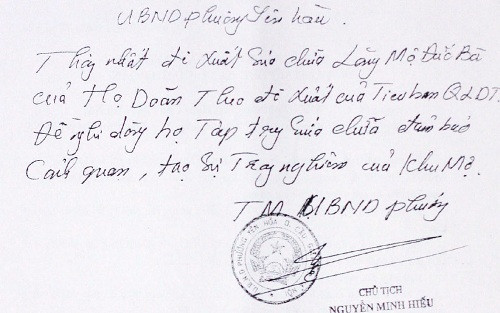 UBND phường Yên hòa.
Thống nhất đề xuất sửa chữa Lăng Mộ Đức Bà
của Họ Doãn Theo đề xuất của Tiểu ban QLDT.
Đề nghị dòng họ Tập trung sửa chữa đảm bảo
Cảnh quan, tạo sự Trang nghiêm của Khu Mộ.
TM UBND phường
CHỦ TỊCH
NGUYỄN MINH HIẾU